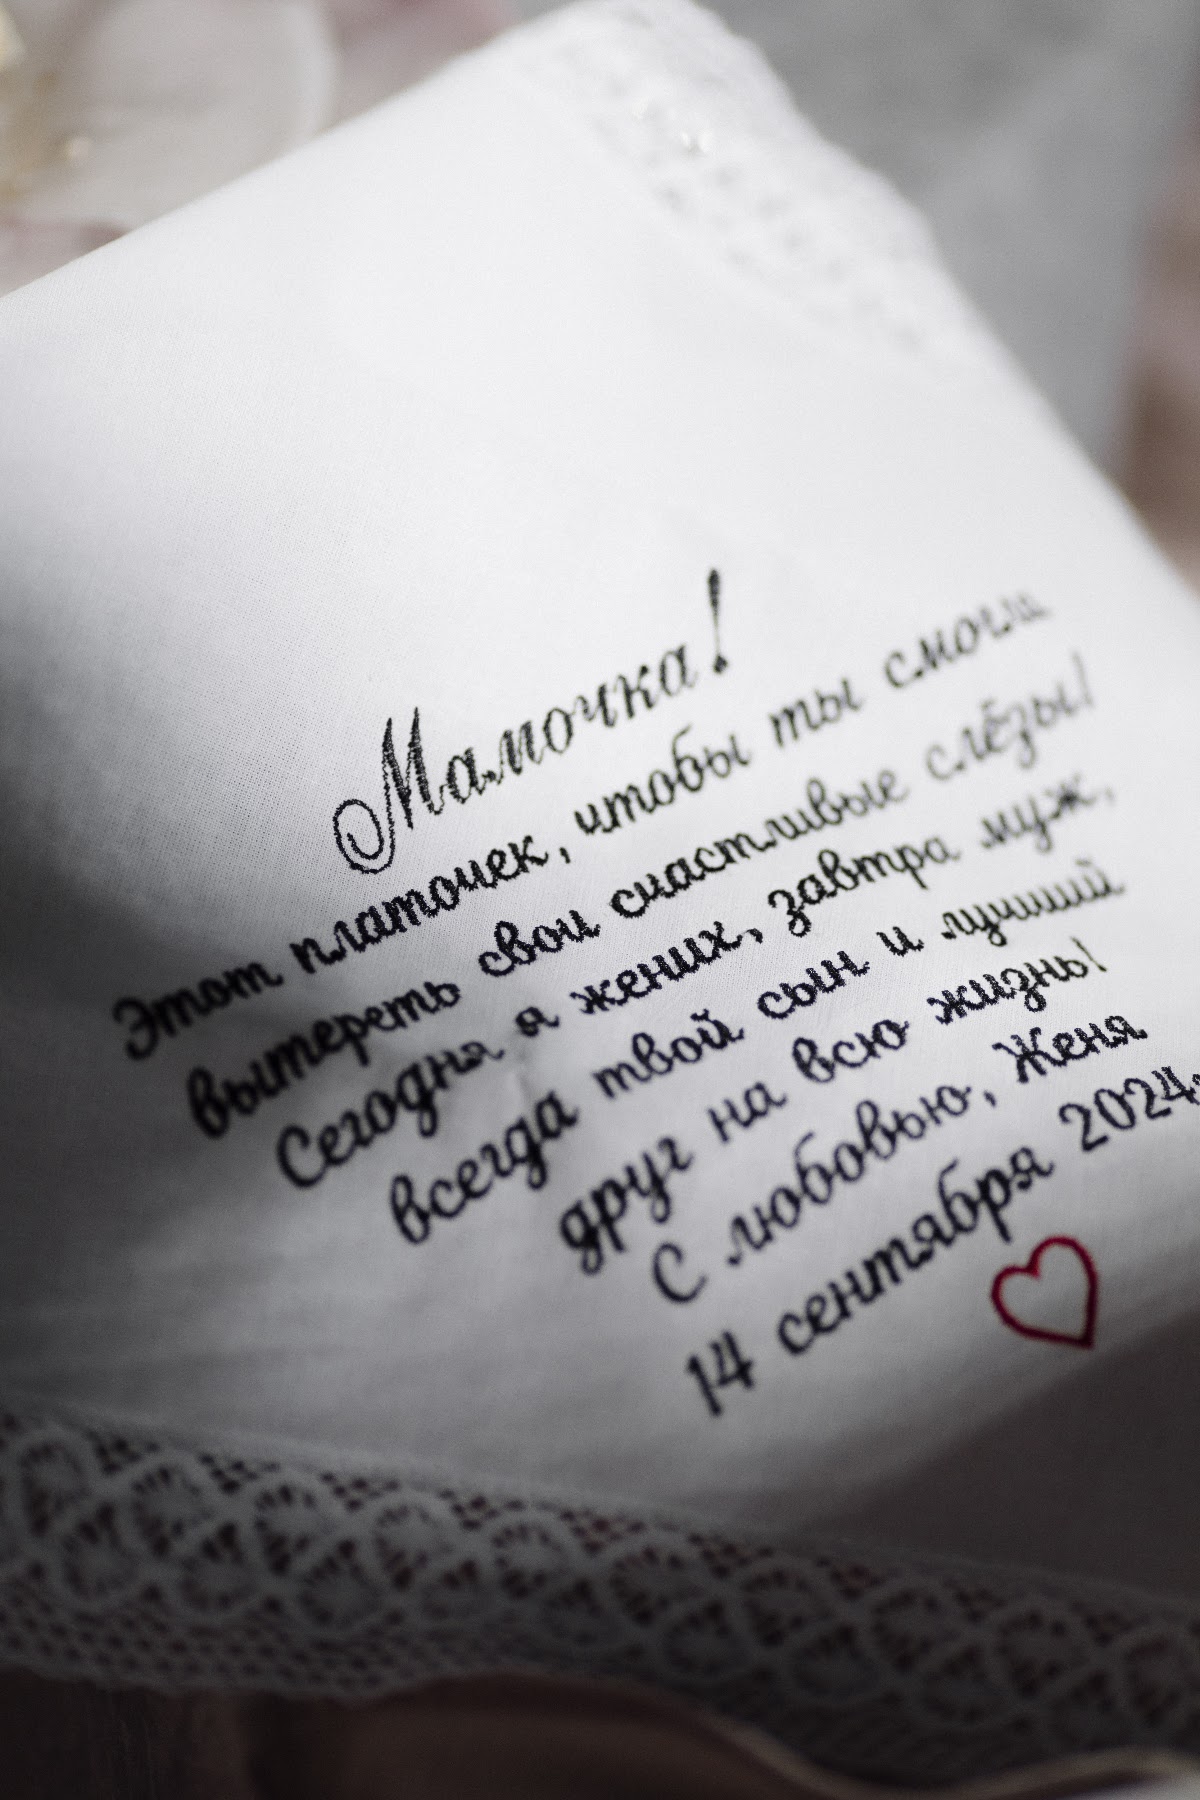 Мамочка!
Этот платочек, чтобы ты смогла
вытереть свои счастливые слёзы!
Сегодня я жених, завтра муж,
всегда твой сын и лучший
друг на всю жизнь!
С любовью, Женя
14 сентября 2024г